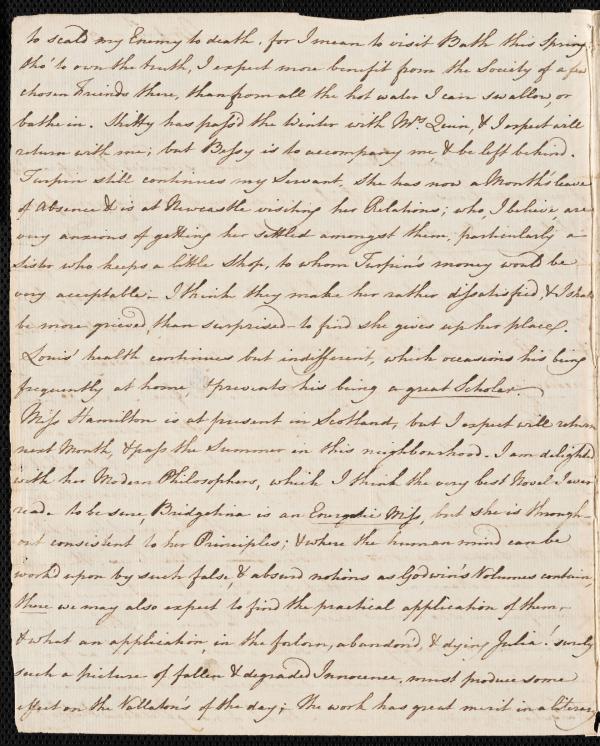 to scald my Enemy to death, for I mean to visit Bath this Spring
tho' to own the truth, I expect more benefit from the Society of a few
chosen Friends there, than from all the hot water I can swallow, or
bathe in. Kitty has pass'd the Winter with Mrs Quin, & I expect will
return with me; but Bessy is to accompany me, & be left behind.
Turpin still continues my Servant. She has now a Month's leave
of Absence & is at Newcastle visiting her Relations; who, I believe, are
very anxious of getting her settled amongst them, particularly a
Sister who keeps a little Shop, to whom Turpin's money would be
very acceptable. I think they make her rather dissatisfied, & I shall
be more grieved, than surprised to find she gives up her place.
Louis' health continues but indifferent, which occasions his being
frequently at home, & prevents his being a great Scholar.
Miss Hamilton is at present in Scotland, but I expect will return
next Month, & pass the Summer in this neighbourhood. I am delighted
with her Modern Philosophers, which I think the very best Novel I ever
read. to be sure, Bridgetina is an Energetic Miss, but she is through-
out consistent to her Principles; & where the human mind can be
work'd upon by such false, & absurd notions as Godwin's Volumes contain,
there we may also expect to find the practical application of them,
& what an application, in the forlorn, abandon'd, & dying Julia! surely
such a picture of fallen & degraded Innocence, must produce some
effect on the Vallaton's of the day; The work has great merit in a literary